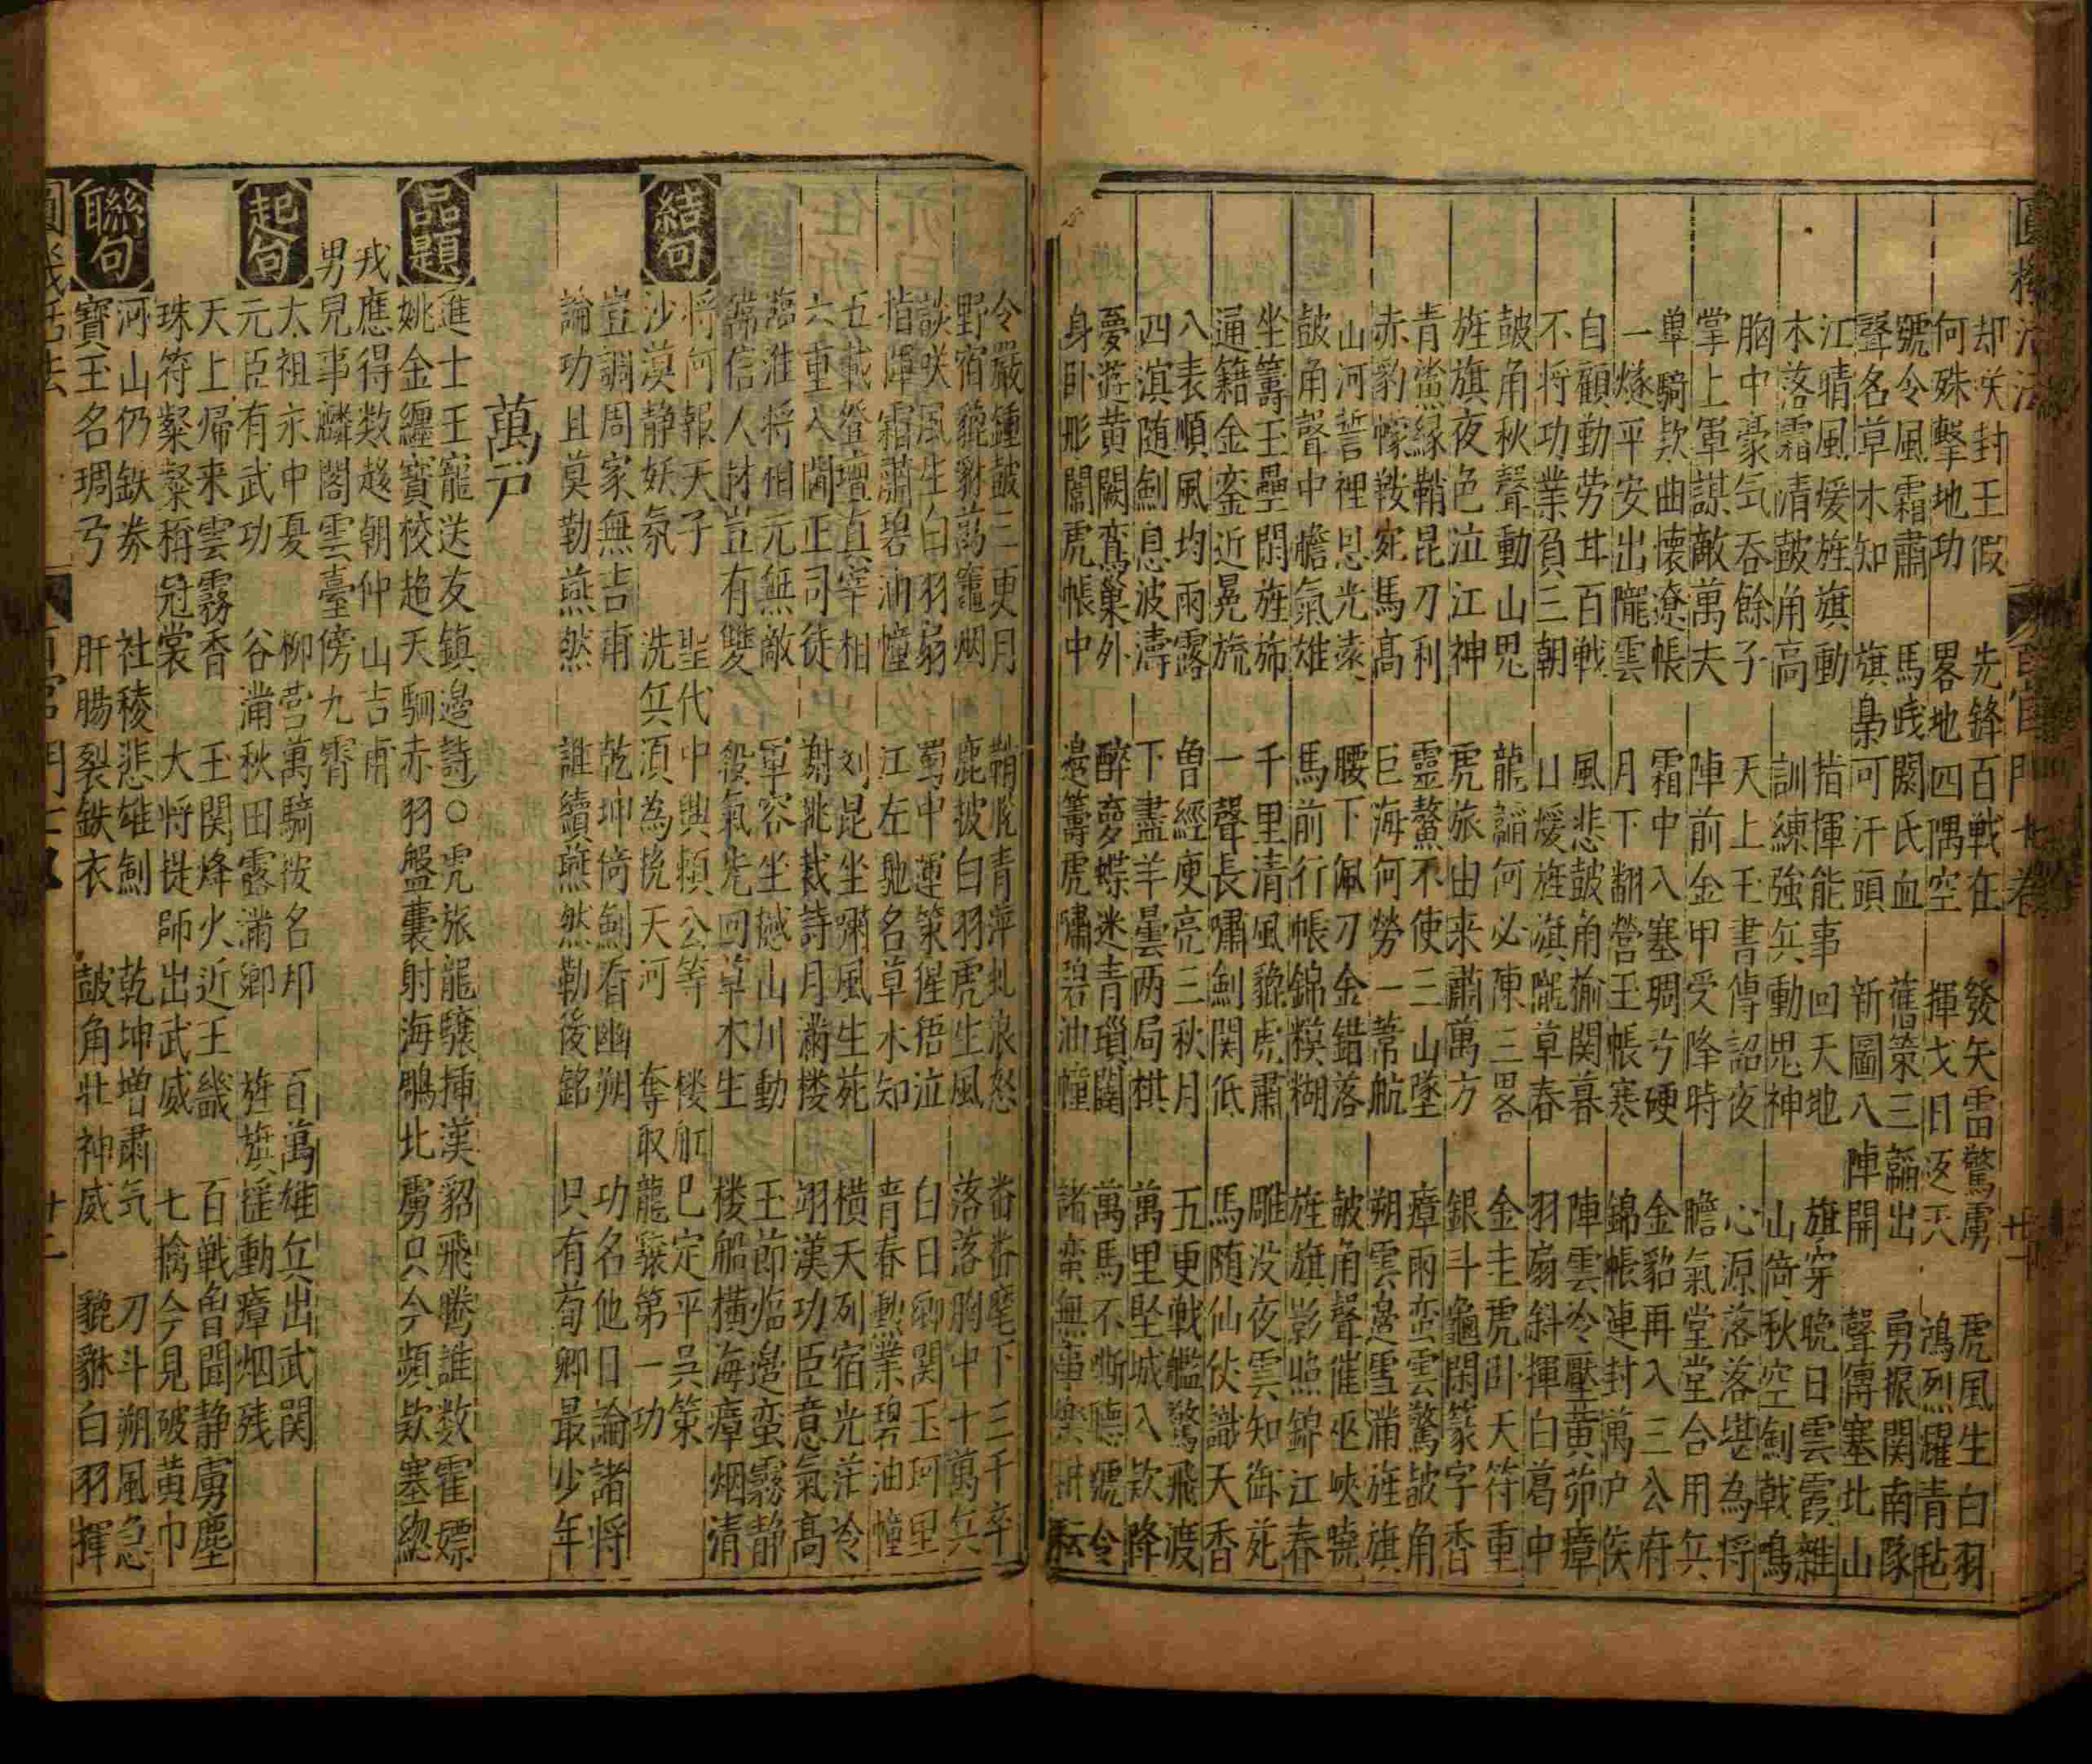 却笑封王假 先鋒百戰在 發矢雷驚虜 虎風生白羽
何殊擊地功 畧地四隅空 揮戈日返天 鴻烈耀青氊
號令風霜肅 馬戝閼氏血 舊策三韜出 勇振關南隊
聲名草木知 旗梟可汗頭 新圖八陣開 聲傳塞北山
江晴風煖旌旗動 指揮能事回天地 旗穿晩日雲霞雜
木落霜清皷角高 訓練強兵動思神 山倚秋空劍戟鳴
胸中豪气吞餘子 天上玉書傳詔夜 心源落落堪為將
掌上軍謀敵萬夫 陣前金甲受降時 膽氣堂堂合用兵
單騎欵曲懷遼帳 霜中入塞琱弓硬 金貂再入三公府
一燧平安出隴雲 月下翻營玉帳寒 錦帳連封萬户侯
自顧動劳甘百戰 風悲皷角榆関暮 陣雲冷壓黄茆瘴
不将功業負三朝 日煖旌旗隴草春 羽扇斜揮白葛中
皷角秋聲動山思 龍韜何必陳三畧 金圭虎卧天符重
旌旗夜色泣江神 虎旅由来肅萬方 銀斗龜閑篆字香
青鯊緣鞘昆刀利 靈鰲不使三山墜 瘴雨蛮雲驚皷角
赤豹幪鞍宛馬高 巨海何勞一葦航 朔雲邉雪滿旌旗
山河誓裡恩光遠 腰下佩刀金錯落 皷角聲催巫峽曉
皷角聲中膽氣雄 馬前行帳錦糢糊 旌旗影照錦江春
坐籌玉壘閒旌斾 千里清風貔虎肅 雕没夜雲知御苑
通籍金銮近冕旒 一聲長嘯劍関低 馬随仙仗識天香
八表順風均雨露 曽經庾亮三秋月 五更戦艦驚飛渡
四溟随劍息波濤 下盡羊曇两局棋 萬里坚城入欵降
夢遊黄闕鸞巢外 醉夢蝶迷青瑣闥 萬馬不嘶聽號令
身卧彤闈虎帳中 邉籌虎嘯碧油幢 諸蛮無事樂耕耘
令嚴鍾皷三更月 鞘脫青萍乳浪怒 畨畨麾下三千卒
野宿貔貅萬竈烟 鹿披白羽虎生風 落落胸中十萬兵
談咲風生白羽扇 蜀中運策猩猩泣 白日卿関玉珂里
指揮霜肅碧油幢 江左馳名草木知 青春勲業碧油幢
五載登壇真宰相 刘昆坐嘯風生苑 横天列宿光茫冷
六重入閫正司徒 謝眺裁詩月滿楼 翊漢功臣意氣高
臨淮将相元無敵 軍容坐撼山川動 玉節临邉蛮霧静
常信人材豈有雙 殺氣先回草木生 楼船横海瘴烟清
結句
将何報天子 聖代中興頼公等 楼舡已定平吳策
沙漠静妖氛 洗兵湏為挽天河 奪取龍驤第一功
豈調周家無吉甫 乾坤倚劍看幽朔 功名他日論諸将
論功且莫勒燕然 誰續燕然勒後銘 只有荀卿最少年
萬戸
品題
進士王寵送友鎮邉詩○虎旅龍驤揷漢貂飛騰誰数霍嫖
姚金纒寳校趍天駉赤羽盤囊射海鵰北虜只今頻欵塞緫
戎應得数趍朝仲山吉甫
男兒事麟閣雲臺傍九霄
起句
太祖亦中憂 柳营萬騎被名邦 百萬雄兵出武関
元臣有武功 谷滿秋田露滿郷 旌旗摧動瘴烟残
天上歸来雲霧香 玉関烽火近王畿 百戦曽聞静虜塵
珠符粲粲稱冠裳 大将徒師出武威 七擒今見破黄巾
聯句
河山仍鉄券 社稜悲雄劍 乾坤増肅气 刀斗朔風急
寳玉名琱弓 肝腸裂鉄衣 皷角壯神威 貔貅白羽揮